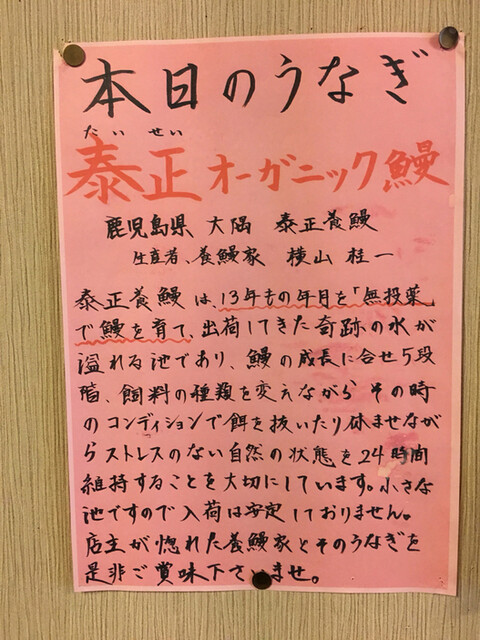 本日のうなぎ
たいせい
泰正オーガニック鰻
鹿児島県 大隅 泰正養鰻
生産者、養鰻家 横山 桂一
泰正養鰻は、13年もの年月を「無投薬」
で鰻を育て、出荷してきた奇跡の水が
溢れる池であり、鰻の成長に合せ5段
階、飼料の種類を変えながらその時
のコンディションで餌を抜いたり休ませなが
らストレスのない自然の状態を24時間
維持することを大切にしています。小さな
池ですので入荷は安定しておりません。
店主が惚れた養鰻家とそのうなぎを
是非ご賞味下さいませ。